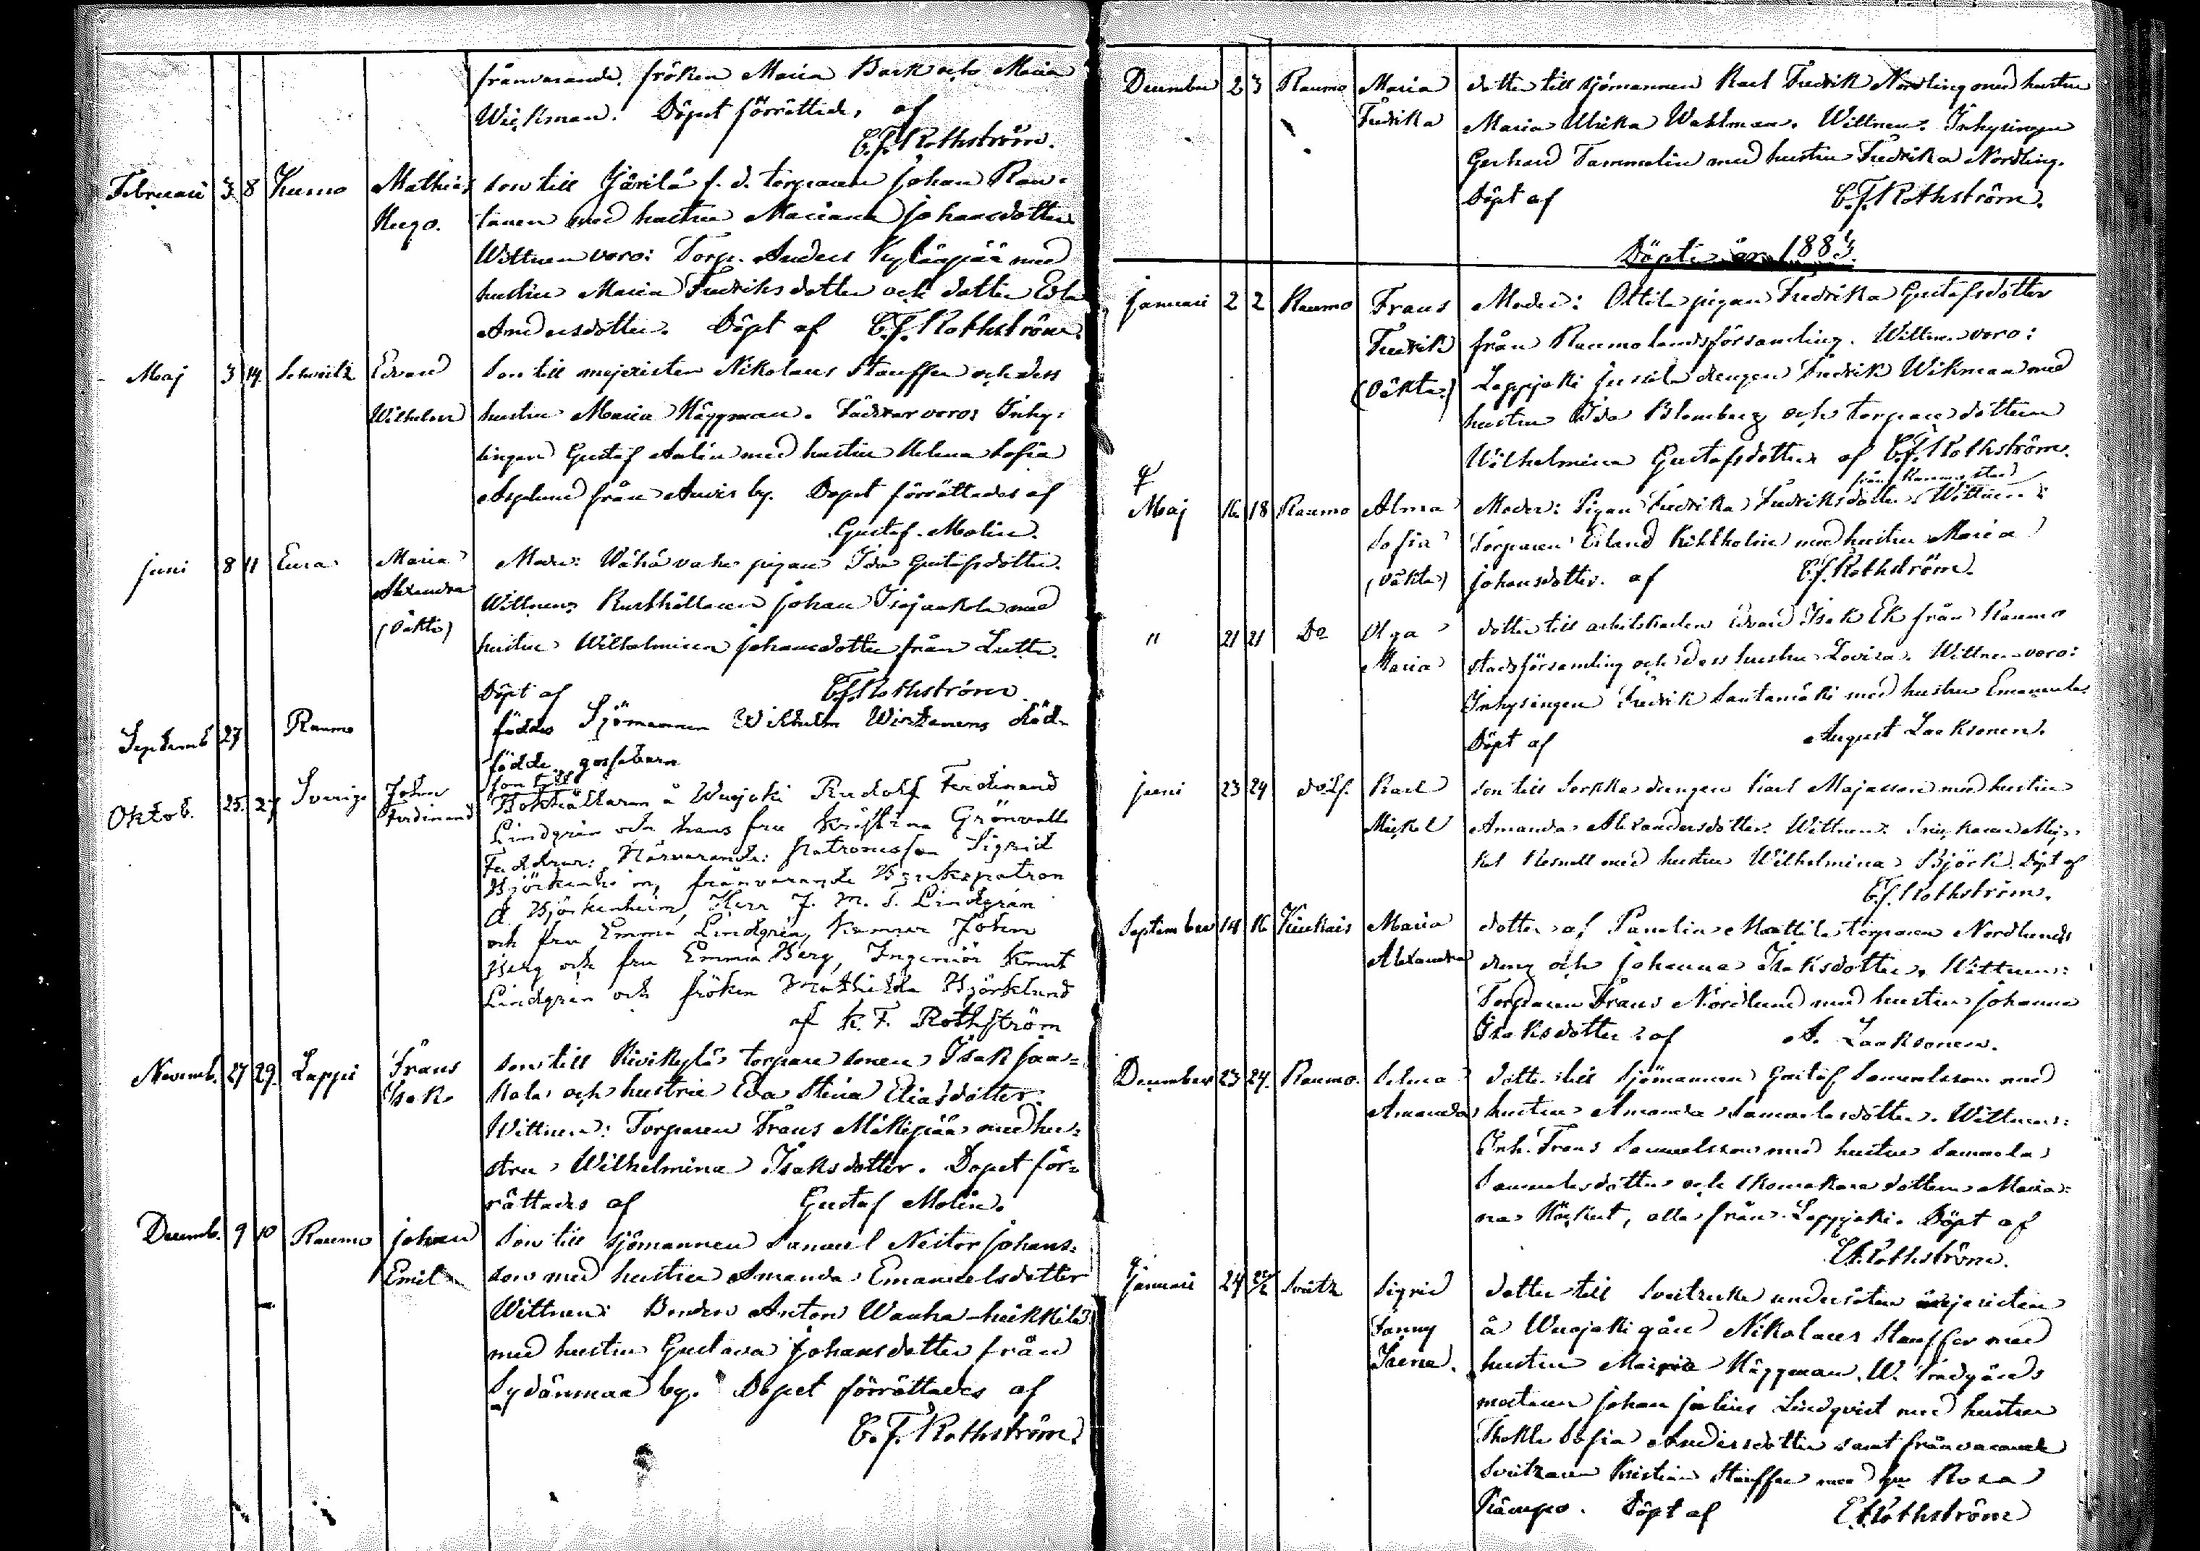 frånvarande. fröken Maria Bark och Maria
Wickman. Döpet förrättade, af
C.F. Rothström.
Februari 3 8 Kumo Mathias son till Järilä f. d. torparen Johan Ran-
Hugo. tanen med hustru Mariana Johansdotter
Wittnen voro: Torp. Anders Kylänpää med
hustru Maria Fredriksdotter och dotter Eva
Andersdotter. Döpt af C.F. Rothström.
Maj 3 14 Schweitz Edvard Son till mejeristen Nikolaus Stauffer och dess
Wilhelm hustru Maria Häggman. Faddrar voro: Inhy-
singen Gustaf Aalin med hustru Helena Sofia
Asplund från Auvis by. Dopet förrättades af
Gustaf Molin.
Juni 8 11 Eura Maria Moder: Wähävahe pigan Ida Gustafsdotter.
Alexandra Wittnen: Rusthållaren Johan Isojaakola med
(oäkta) hustru Wilhelmina Johansdotter från Lutta.
Döpt af C.F. Rothström.
Septemb 27 Raumo föddes Sjömannen Wilhelm Wirtanens död-
födde gossebarn
Oktob. 25. 27 Sverige John Son till
Ferdinand Bokhållaren å Wuojoki Rudolf Ferdinand
Lindgrén och hans fru Kristina Grönvall
Faddrar: Närvarande: Patronessan Sigrid
Björkenheim, frånvarande Brukspatron
A. Björkenheim, Herr J. M. T. Lindgrén
och fru Emma Lindgrén, Kamrer John
Berg och fru Emma Berg, Ingeniör Knut
Lindgrén och fröken Mathilda Björklund
af K. F. Rothström
Novemb. 27 29. Lappi Frans son till Kivikylä torpare sonen Isak Jaa-
Isak. kola och hustru Eva Stina Eliasdotter.
Wittnen: Torparen Frans Mäkipää med hu-
stru Wilhelmina Isaksdotter. Dopet för-
rättades af Gustaf Molin.
Decemb. 9 10 Raumo Johan Son till sjömannen Samuel Nestor Johans-
Emil son med hustru Amanda Emanuelsdotter
Wittnen: Bonden Anton Wanha-heikkilä
med hustru Gustava Johansdotter från
Sydänmaa by. Dopet förrättades af
C. F. Rothström.
December 2 3 Raumo Maria dotter till sjömannen Karl Fredrik Nordling med hustru
Fredrika Maria Ulrika Wahlman. Wittnen. Inhysingen
Gerhard Tammelin med hustru Fredrika Nordling.
Döpt af C.F. Rothström.
Döpte år 188
Januari 2 2 Raumo Frans Moder: Ottila pigan Fredrika Gustafsdotter
Fredrik från Raumo landsförsamling. Wittnen voro:
(oäkta) Lappjoki Jussila drengen Fredrik Wikman med
hustru Ida Blomberg och torpare dottern
Wilhelmina Gustafsdotter af C.F. Rothström.
från Raumo stad
Maj 16 18 Raumo Alma Moder: Pigan Fredrika Fredriksdotter. Wittnen:
Sofia Torparen Erland Kihlholm med hustru Maria
(oäkta) Johansdotter. af C.F. Rothström.
" 21 21 Do Olga dotter till arbetskarlen Edvard Isak Ek från Raumo
Maria stadsförsamling och dess hustru Lovisa. Wittnen voro:
Inhysingen Fredrik Santamäki med hustru Emanuela
Döpt af August Laaksonen.
Juni 23 24 do. Lf. Karl son till Sorkka drengen Karl Majasson med hustru
Mickel Amanda Alexandersdotter. Wittnen:
med hustru Wilhelmina Björk. Döpt af
C.F. Rothström.
September 14 16 Kiukais Maria dotter af Panelin Mattila torparen Nordlunds
Alexandra dreng och Johanna Isaksdotter. Wittnen:
Torparen Frans Nordlund med hustru Johanna
Isaksdotter: af A. Laaksonen.
December 23 24. Raumo. Selma dotter till sjömannen Gustaf Samuelsson med
Amanda hustru Amanda Samuelsdotter. Wittnen:
Inh. Frans Samuelsson med hustru Samuela
Samuelsdotter och skomakare dottern Maria-
na Häckert, alla från Lappjoki. Döpt af
C.F. Rothström.
Januari 24 Svitz Sigrid dotter till Sveitsiske undersåten mejeristen
Fanny å Wuojoki gård Nikolaus Stauffer med
Irene. hustru Maria Häggman. W. Trädgårds
mästaren Johan Julius Lindqvist med hustru
Thekla Sofia Andersdotter samt frånvarande
Svitzaren Kristian Stauffer med fru Rosa
Kämpo. Döpt af C.F. Rothström